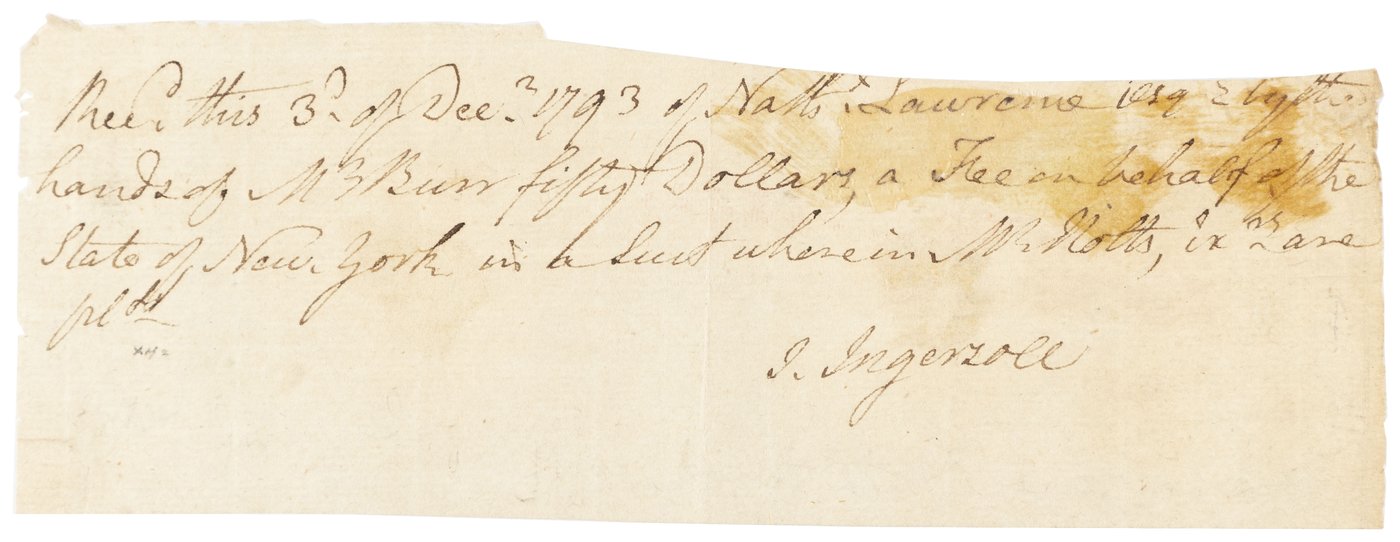 Rec.d this 3.d of Dec.r 1793 of Nath.l Lawrence esq.r by the
hands of Mr Burr fifty Dollars, a Fee on behalf of the
State of New York in a Suit wherein Mr Notts, Ex.rs are
pl.ts
J. Ingersoll